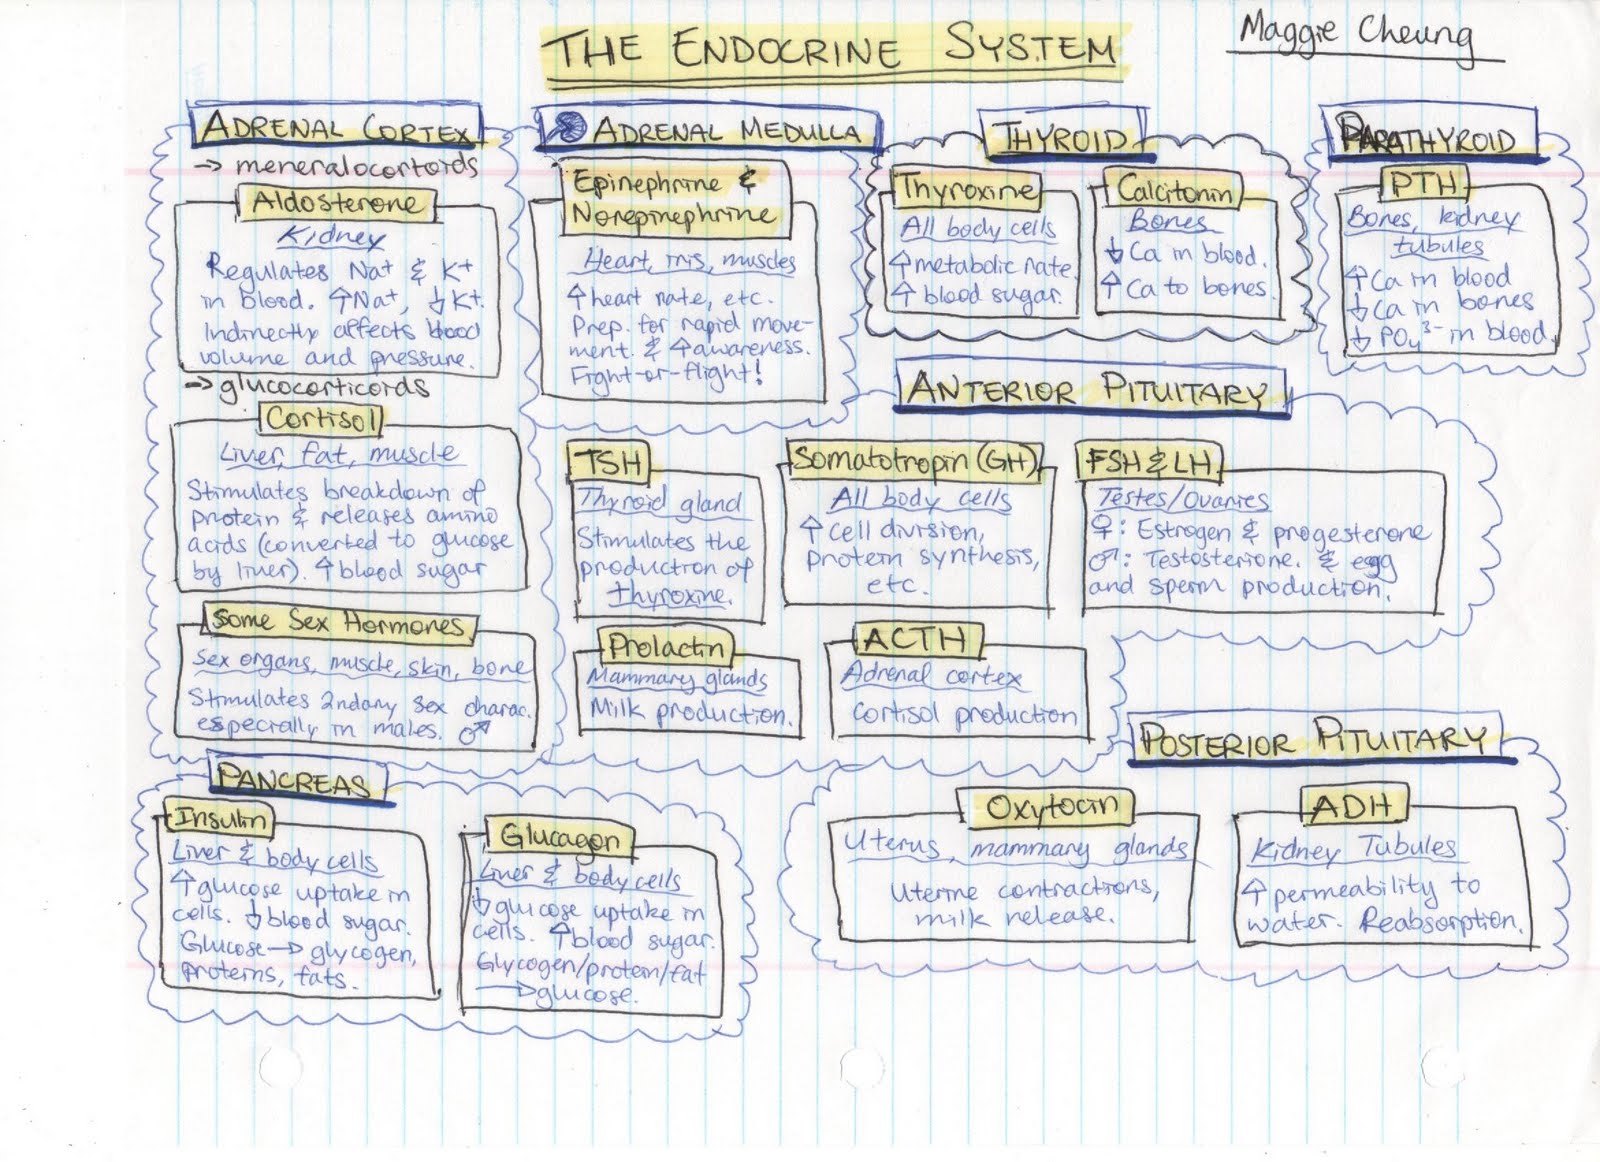 THE ENDOCRINE SYSTEM
Maggie Cheung
ADRENAL CORTEX
→ meneralocortoids
Aldosterone
Kidney
Regulates Na⁺ & K⁺
in blood. ↑Na⁺, ↓K⁺.
Indirectly affects blood
volume and pressure.
→ glucocorticoids
Cortisol
Liver, fat, muscle
Stimulates breakdown of
protein & releases amino
acids (converted to glucose
by liver). ↑ blood sugar
Some Sex Hormones
Sex organs, muscle, skin, bone
Stimulates 2ndary sex charac.
especially in males. ♂
ADRENAL MEDULLA
Epinephrine &
Norepinephrine
Heart, iris, muscles
↑ heart rate, etc.
Prep. for rapid move-
ment. & ↑ awareness.
Fight-or-flight!
THYROID
Thyroxine
All body cells
↑ metabolic rate.
↑ blood sugar.
Calcitonin
Bones
↓ Ca in blood.
↑ Ca to bones.
PARATHYROID
PTH
Bones, kidney
tubules
↑ Ca in blood
↓ Ca in bones
↓ PO₄³⁻ in blood.
ANTERIOR PITUITARY
TSH
Thyroid gland
Stimulates the
production of
thyroxine.
Somatotropin (GH)
All body cells
↑ cell division,
protein synthesis,
etc.
FSH & LH
Testes/Ovaries
♀: Estrogen & progesterone
♂: Testosterone. & egg
and sperm production.
Prolactin
Mammary glands
Milk production.
ACTH
Adrenal cortex
Cortisol production
POSTERIOR PITUITARY
Oxytocin
Uterus, mammary glands
Uterine contractions,
milk release.
ADH
Kidney Tubules
↑ permeability to
water. Reabsorption.
PANCREAS
Insulin
Liver & body cells
↑ glucose uptake in
cells. ↓ blood sugar.
Glucose → glycogen,
proteins, fats.
Glucagon
Liver & body cells
↓ glucose uptake in
cells. ↑ blood sugar.
Glycogen/protein/fat
→ glucose.